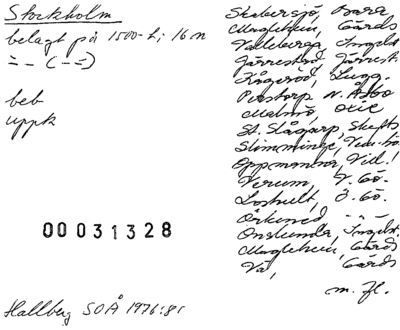 Stockholm
belagt på 1500-t; 16 n
= - (- =)
beb
uppk
00031328
Hallberg SOÅ 1976:8
Skabersjö, Bara
Maglehem, Gärds
Valleberga, Ingelst.
Järrestad, Järrest.
Kågeröd, Lugg.
Perstorp N. Åsbo
Malmö, Oxie
St. Slågarp, Skytts
Simminge,
Oppmanna, Vill.
Verum, V. Gö.
Loshult, Ö. Gö.
Örkened -"-
Onslunda, Ingelst.
Maglehem, Gärds
Vä, Gärds
m. fl.